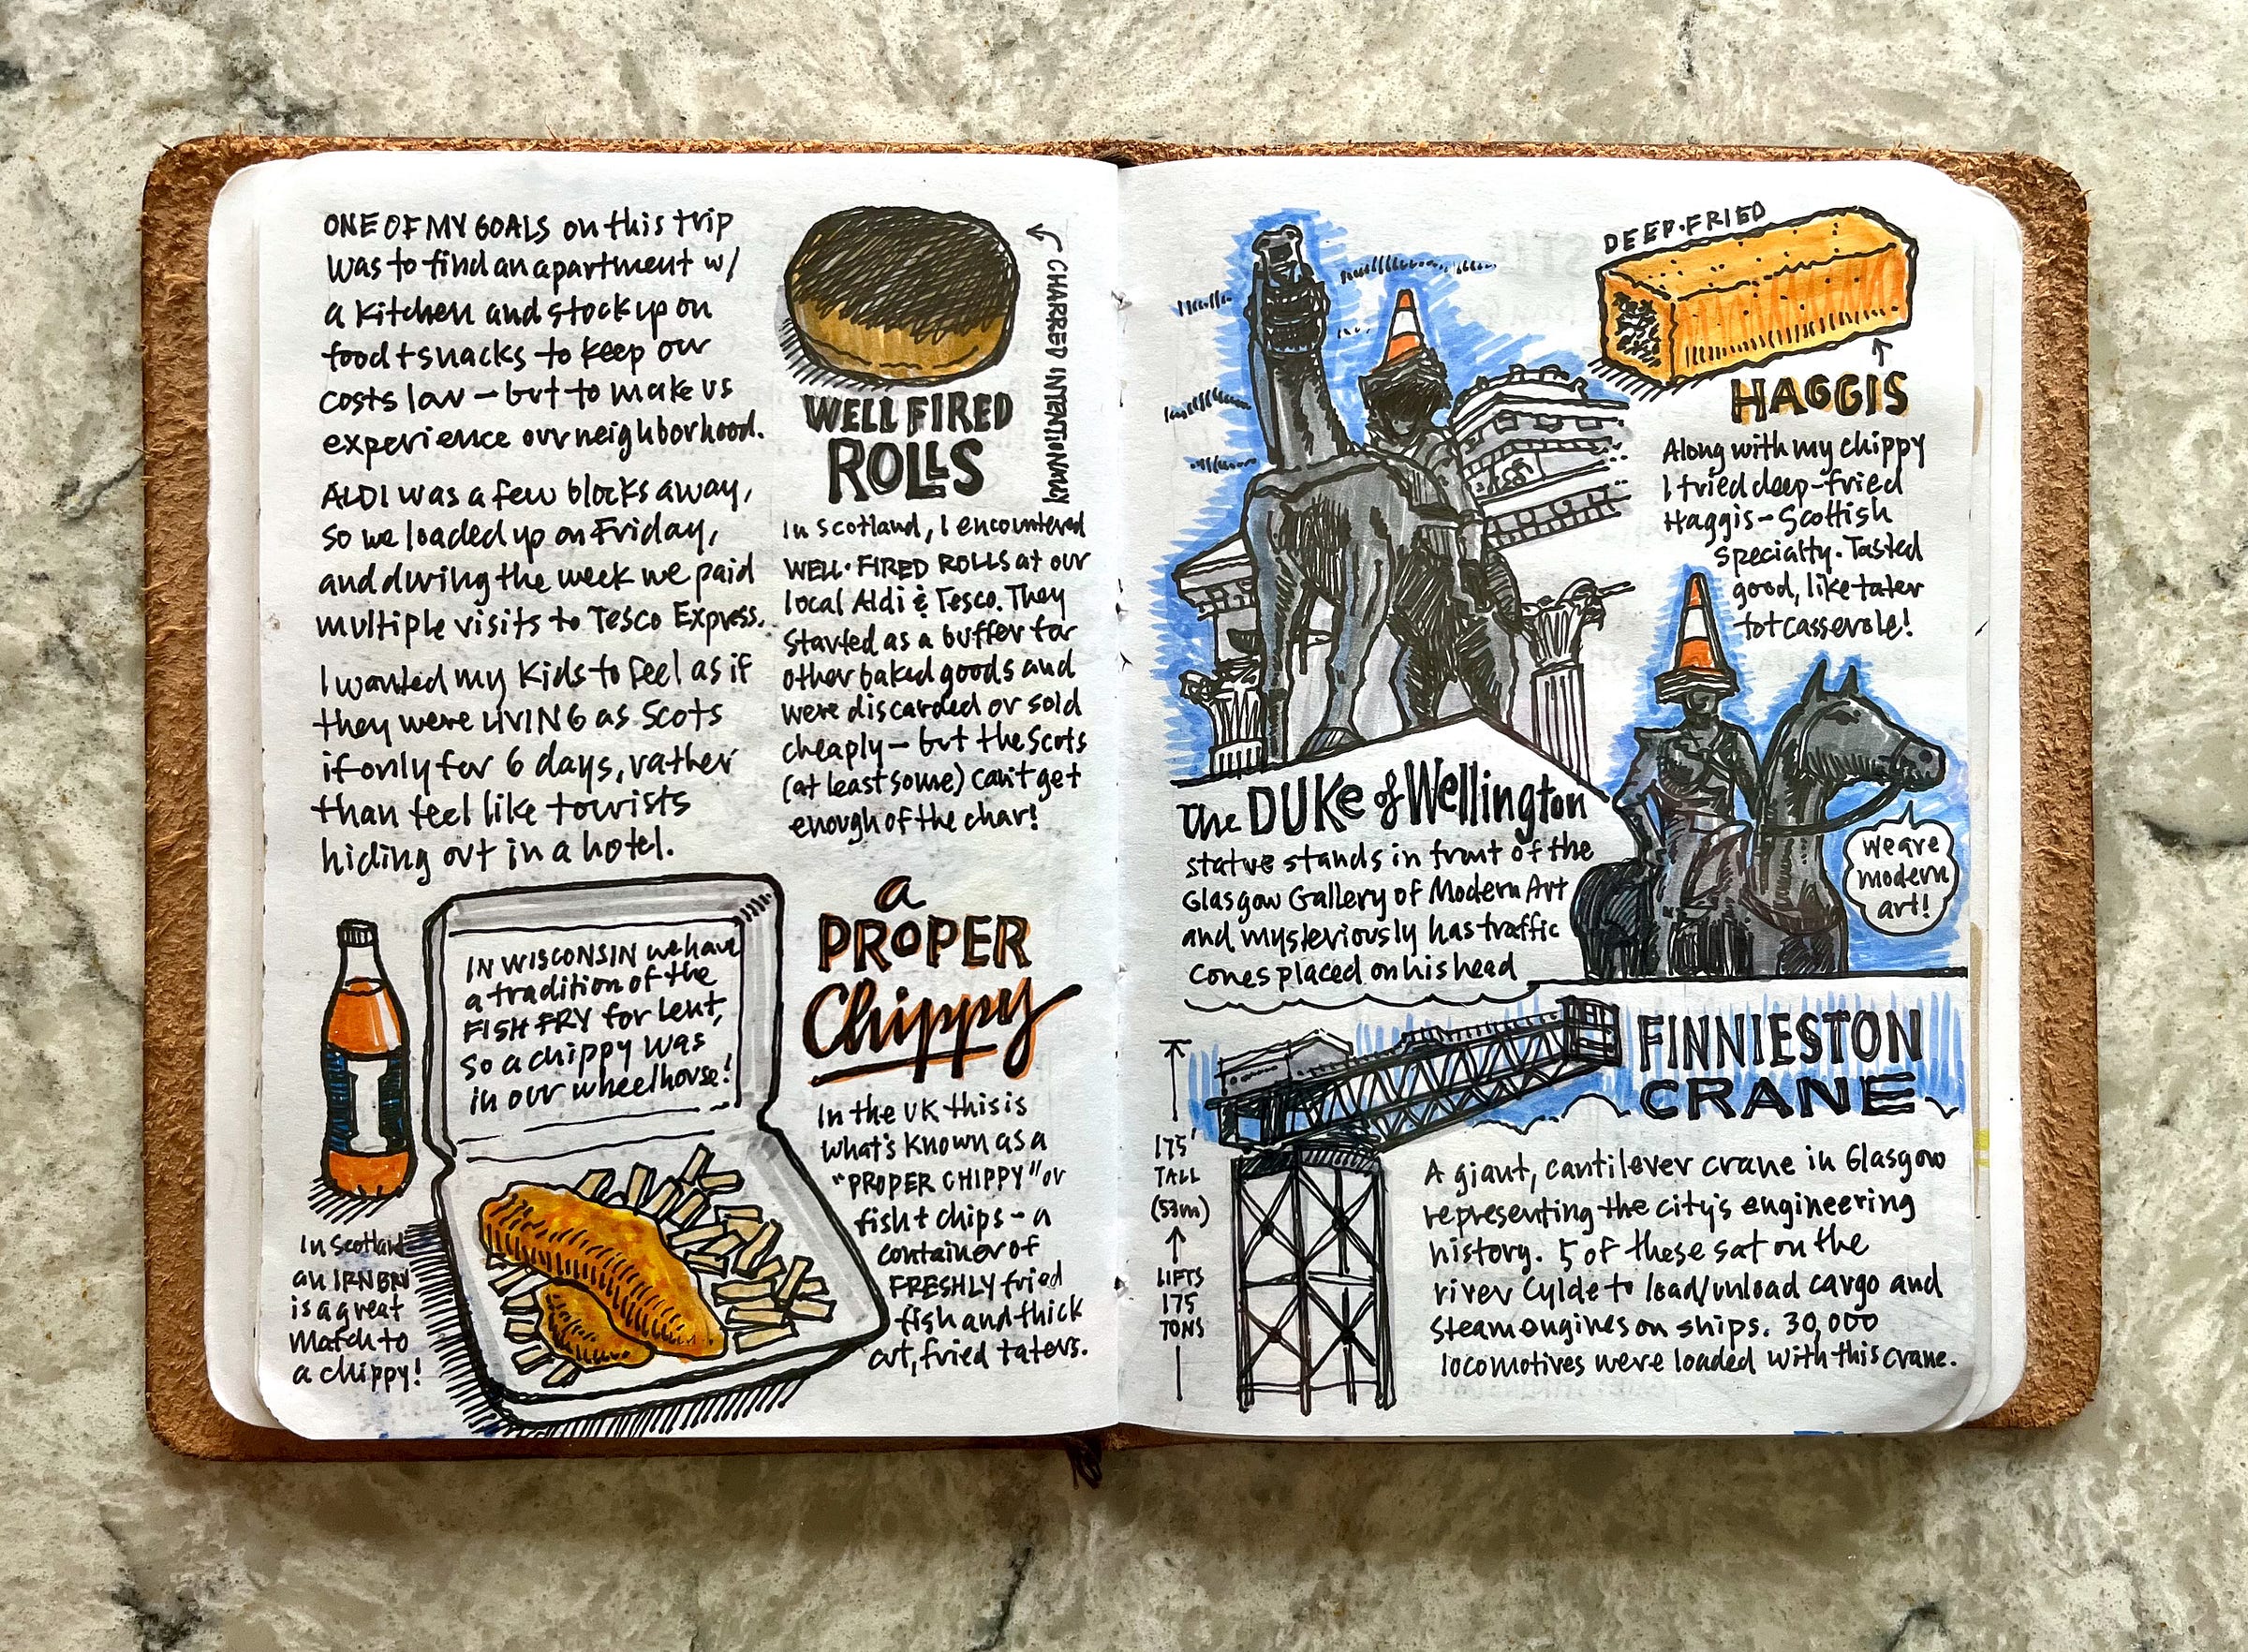 ONE OF MY GOALS on this trip
was to find an apartment w/
a kitchen and stock up on
food + snacks to keep our
costs low – but to make us
experience our neighborhood.
ALDI was a few blocks away,
so we loaded up on Friday,
and during the week we paid
multiple visits to Tesco Express.
I wanted my kids to feel as if
they were LIVING as Scots
if only for 6 days, rather
than feel like tourists
hiding out in a hotel.
CHARRED INTENTIONALLY
WELL FIRED
ROLLS
In Scotland, I encountered
WELL·FIRED ROLLS at our
local Aldi & Tesco. They
started as a buffer for
other baked goods and
were discarded or sold
cheaply – but the Scots
(at least some) can't get
enough of the char!
IN WISCONSIN we have
a tradition of the
FISH FRY for Lent,
so a chippy was
in our wheelhouse!
In Scotland
an IRN BRU
is a great
match to
a chippy!
a
PROPER
Chippy
In the UK this is
what's known as a
"PROPER CHIPPY" or
fish + chips – a
container of
FRESHLY fried
fish and thick
cut, fried taters.
DEEP·FRIED
HAGGIS
Along with my chippy
I tried deep-fried
Haggis – Scottish
specialty. Tasted
good, like tater
tot casserole!
The DUKE of Wellington
statue stands in front of the
Glasgow Gallery of Modern Art
and mysteriously has traffic
cones placed on his head
we are
modern
art!
FINNIESTON
CRANE
175'
TALL
(53m)
LIFTS
175
TONS
A giant, cantilever crane in Glasgow
representing the city's engineering
history. 5 of these sat on the
river Cylde to load/unload cargo and
steam engines on ships. 30,000
locomotives were loaded with this crane.